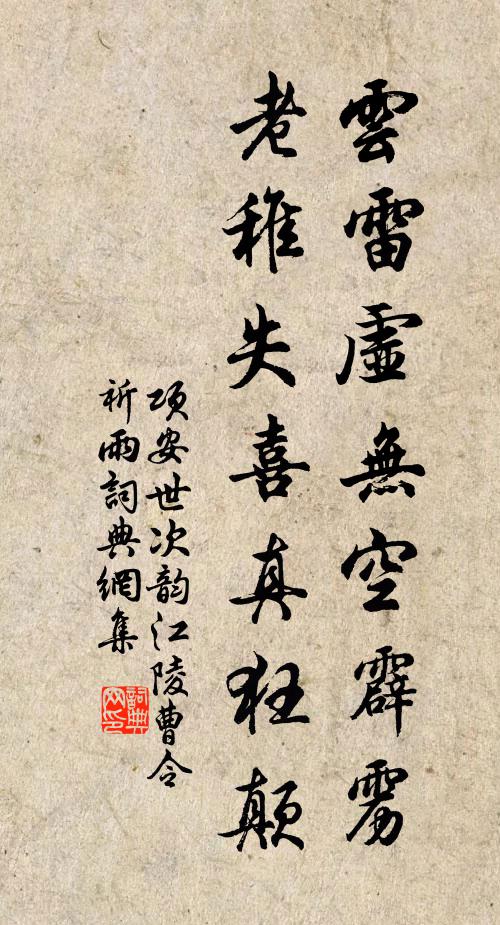 雲雷虛無空霹雳
老稚失喜真狂顛
項安世次韵江陵曹令
祈雨詞典網集
詞典网印